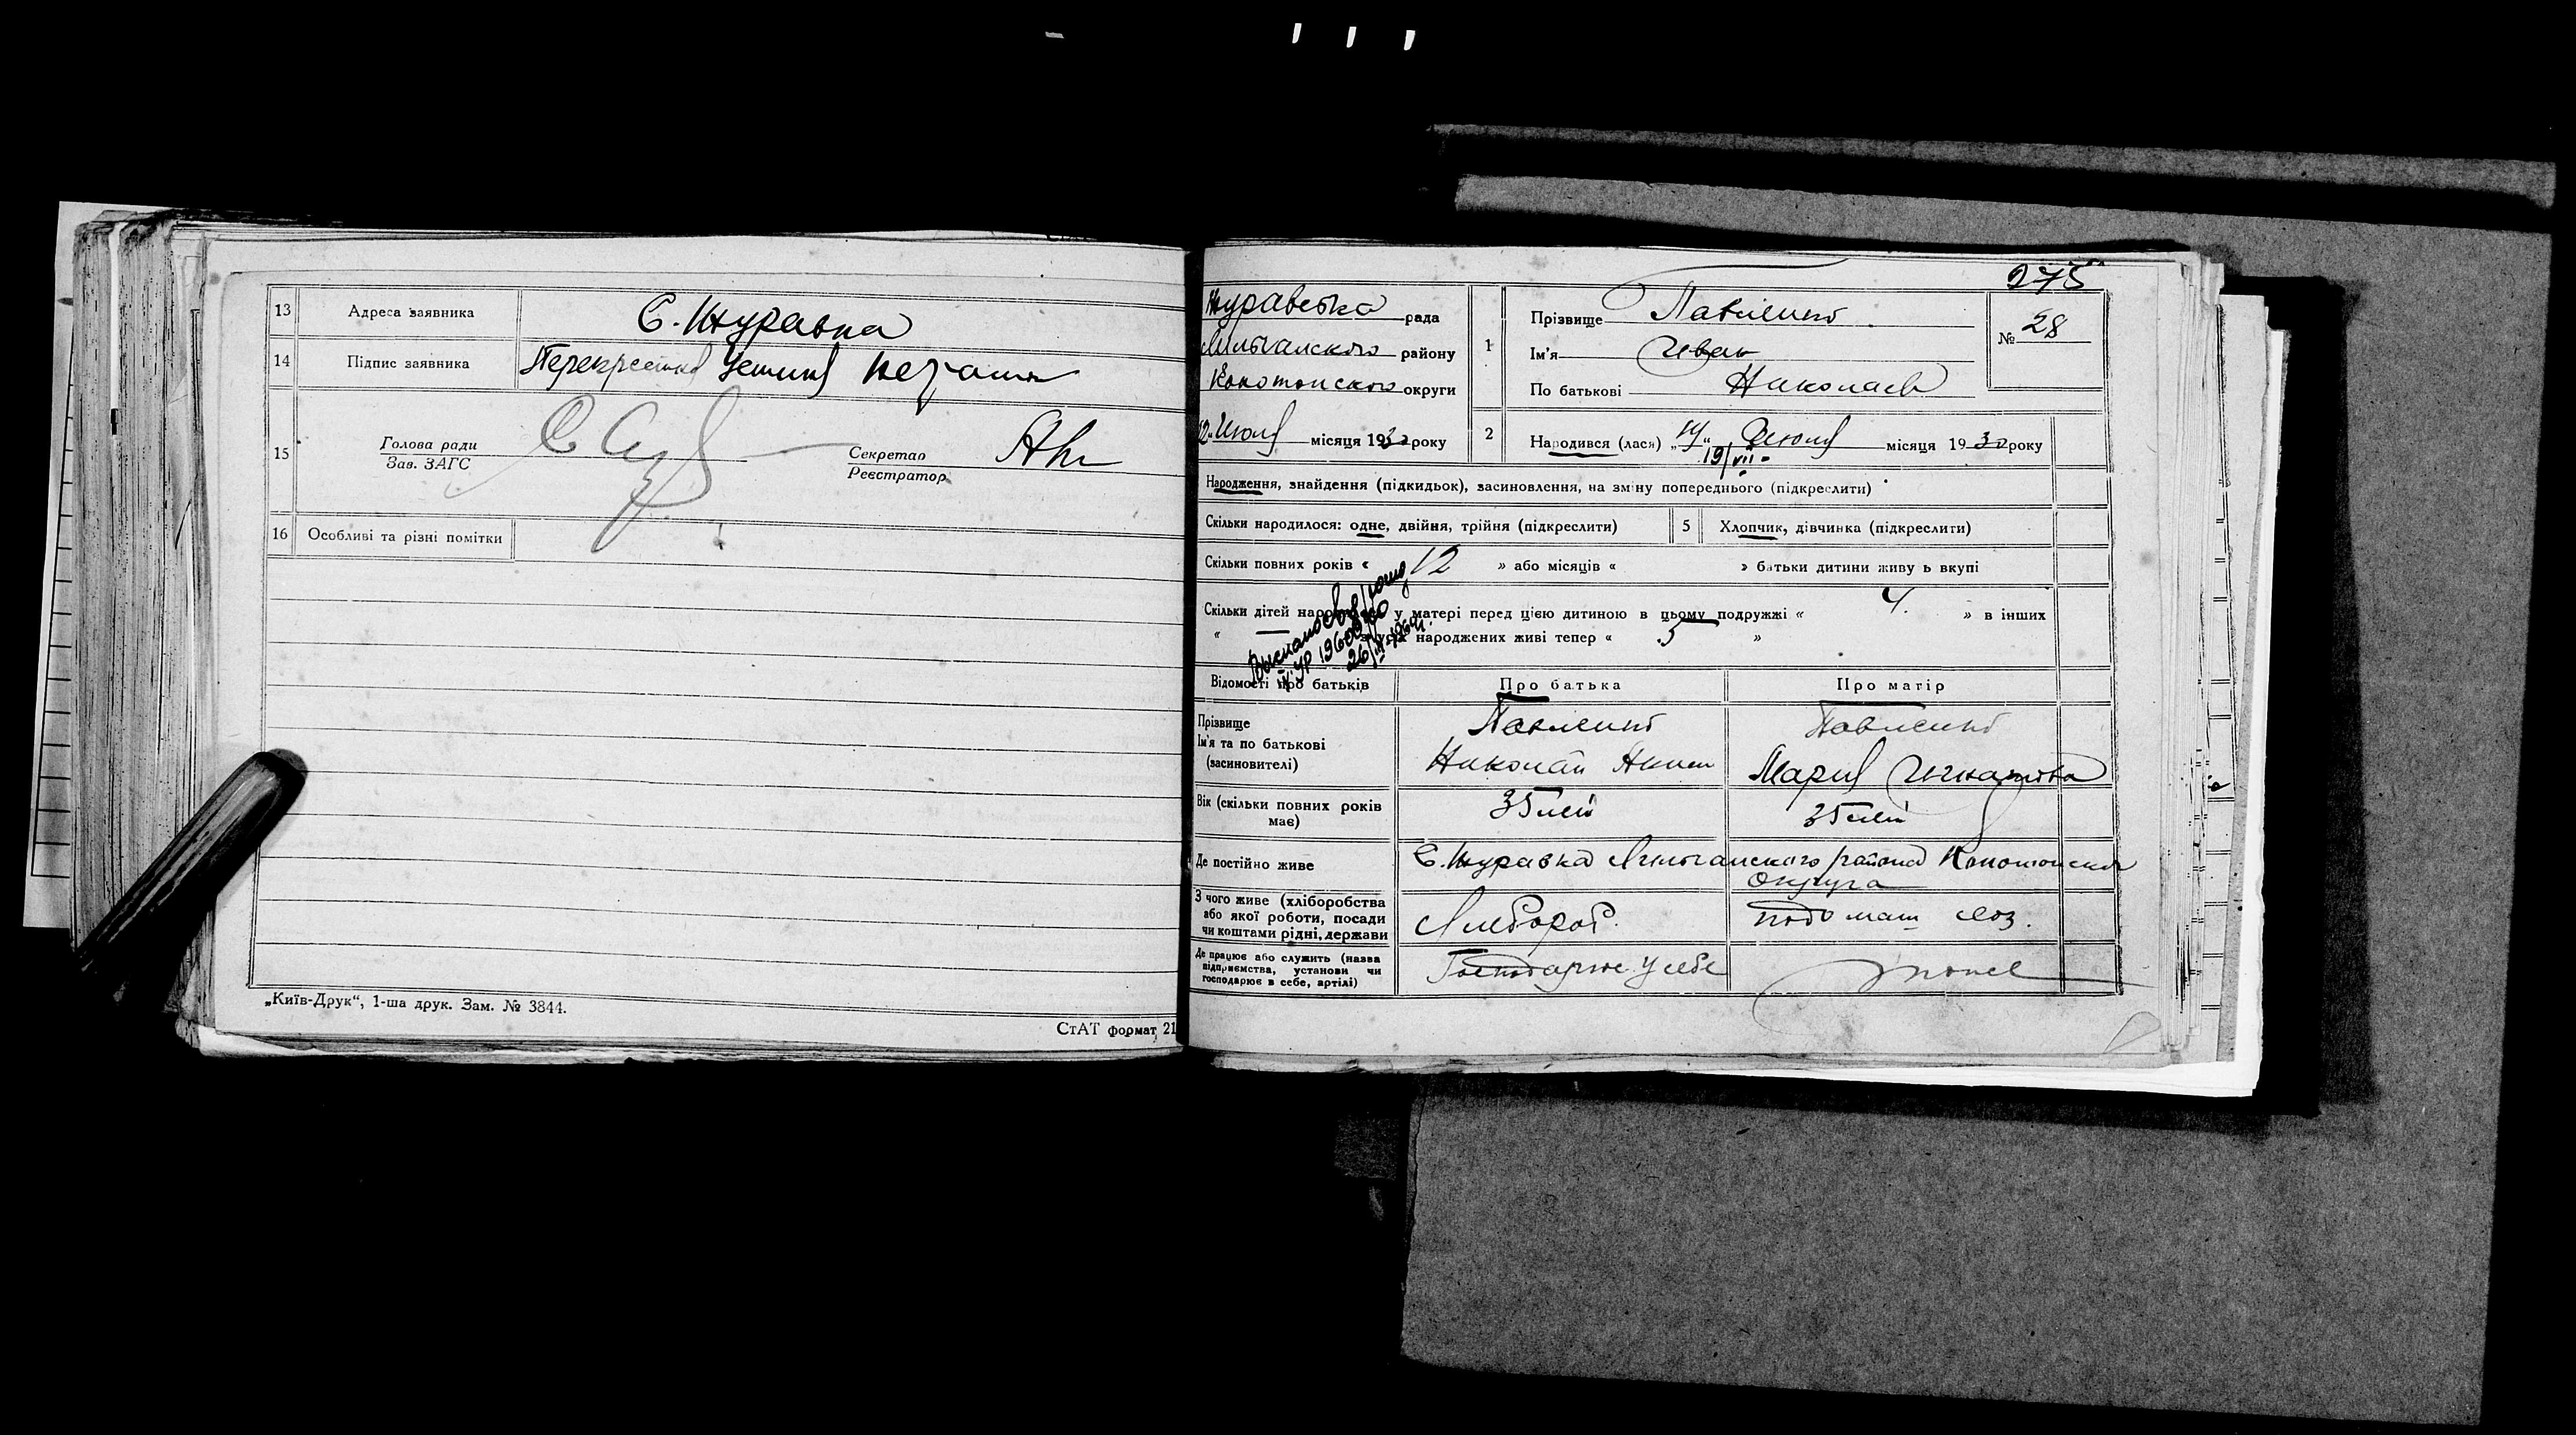 13 Адреса заявника С. Журавка
14 Підпис заявника
15 Голова ради
Зав. ЗАГС
Секретар
Реєстратор
16 Особливі та різні помітки
„Київ-Друк“, 1-ша друк. Зам. № 3844.
СтАТ формат 21
275
Журавська рада
району
Конотопского округи
Июля місяця 1930 року
1 Прізвище Павленко
Ім'я Иван
По батькові Николаев
№ 28
2 Народився (лася) „14“ Июля місяця 1930 року
19/VII
Народження, знайдення (підкидьок), засиновлення, на зміну попереднього (підкреслити)
Скільки народилося: одне, двійня, трійня (підкреслити) 5 Хлопчик, дівчинка (підкреслити)
Скільки повних років « 12 » або місяців « » батьки дитини живуть вкупі
Скільки дітей у матері перед цією дитиною в цьому подружжі « 4. » в інших
« народжених живі тепер « 5 »
Відомості про батьків Про батька Про матір
Прізвище Павленко Павленко
Ім'я та по батькові Николай Мария Игнатовна
(засиновителі)
Вік (скільки повних років має) 35 лет 35 лет
Де постійно живе С. Журавка района Конотопской
округа
З чого живе (хліборобства
або якої роботи, посади
чи коштами рідні, держави Хлебороб.
Де працює або служить (назва
підприємства, установи чи
господарює в себе, артілі) Господарює у себе